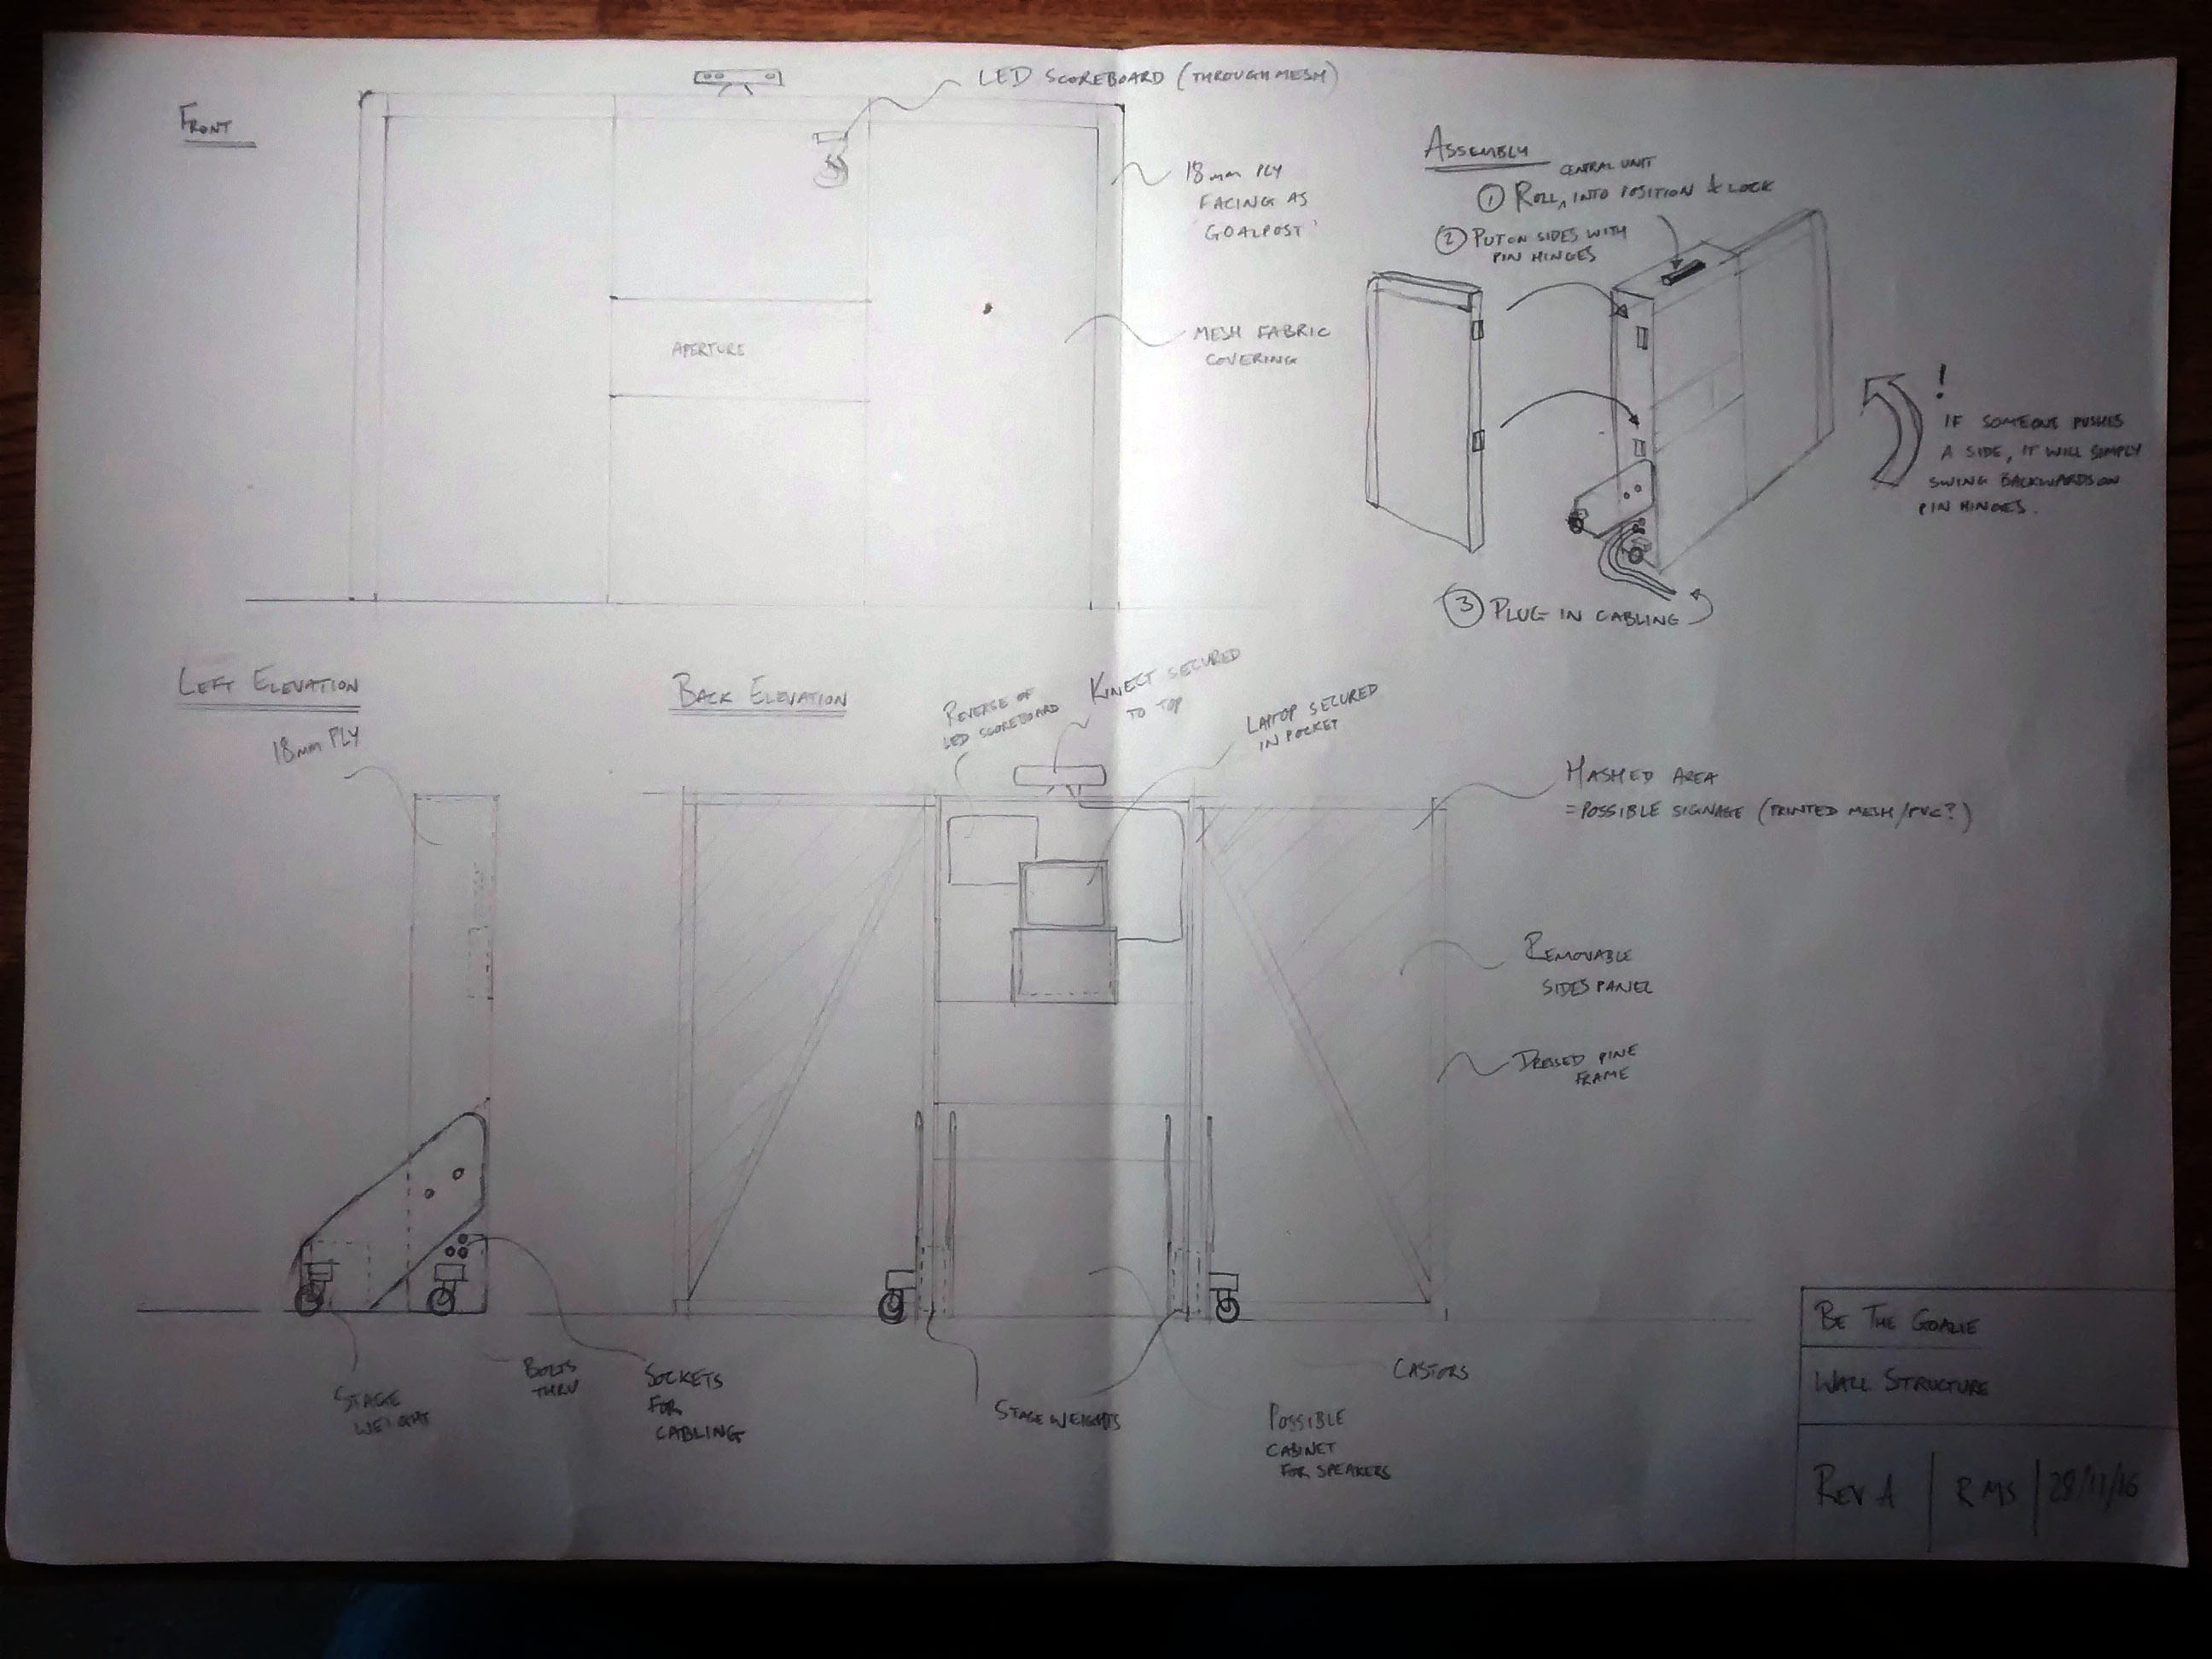 FRONT
LED SCOREBOARD (THROUGH MESH)
18mm PLY
FACING AS
'GOALPOST'
MESH FABRIC
COVERING
APERTURE
ASSEMBLY
CENTRAL UNIT
① ROLL ^ INTO POSITION & LOCK
② PUT ON SIDES WITH
PIN HINGES
!
IF SOMEONE PUSHES
A SIDE, IT WILL SIMPLY
SWING BACKWARDS ON
PIN HINGES.
③ PLUG IN CABLING
LEFT ELEVATION
18mm PLY
STAGE
WEIGHT
BOLTS
THRU
SOCKETS
FOR
CABLING
BACK ELEVATION
REVERSE OF
LED SCOREBOARD
KINECT SECURED
TO TOP
LAPTOP SECURED
IN POCKET
HASHED AREA
= POSSIBLE SIGNAGE (PRINTED MESH/PVC?)
REMOVABLE
SIDES PANEL
DRESSED PINE
FRAME
STAGE WEIGHTS
POSSIBLE
CABINET
FOR SPEAKERS
CASTORS
BE THE GOALIE
WALL STRUCTURE
REV A | RMS | 28/11/16